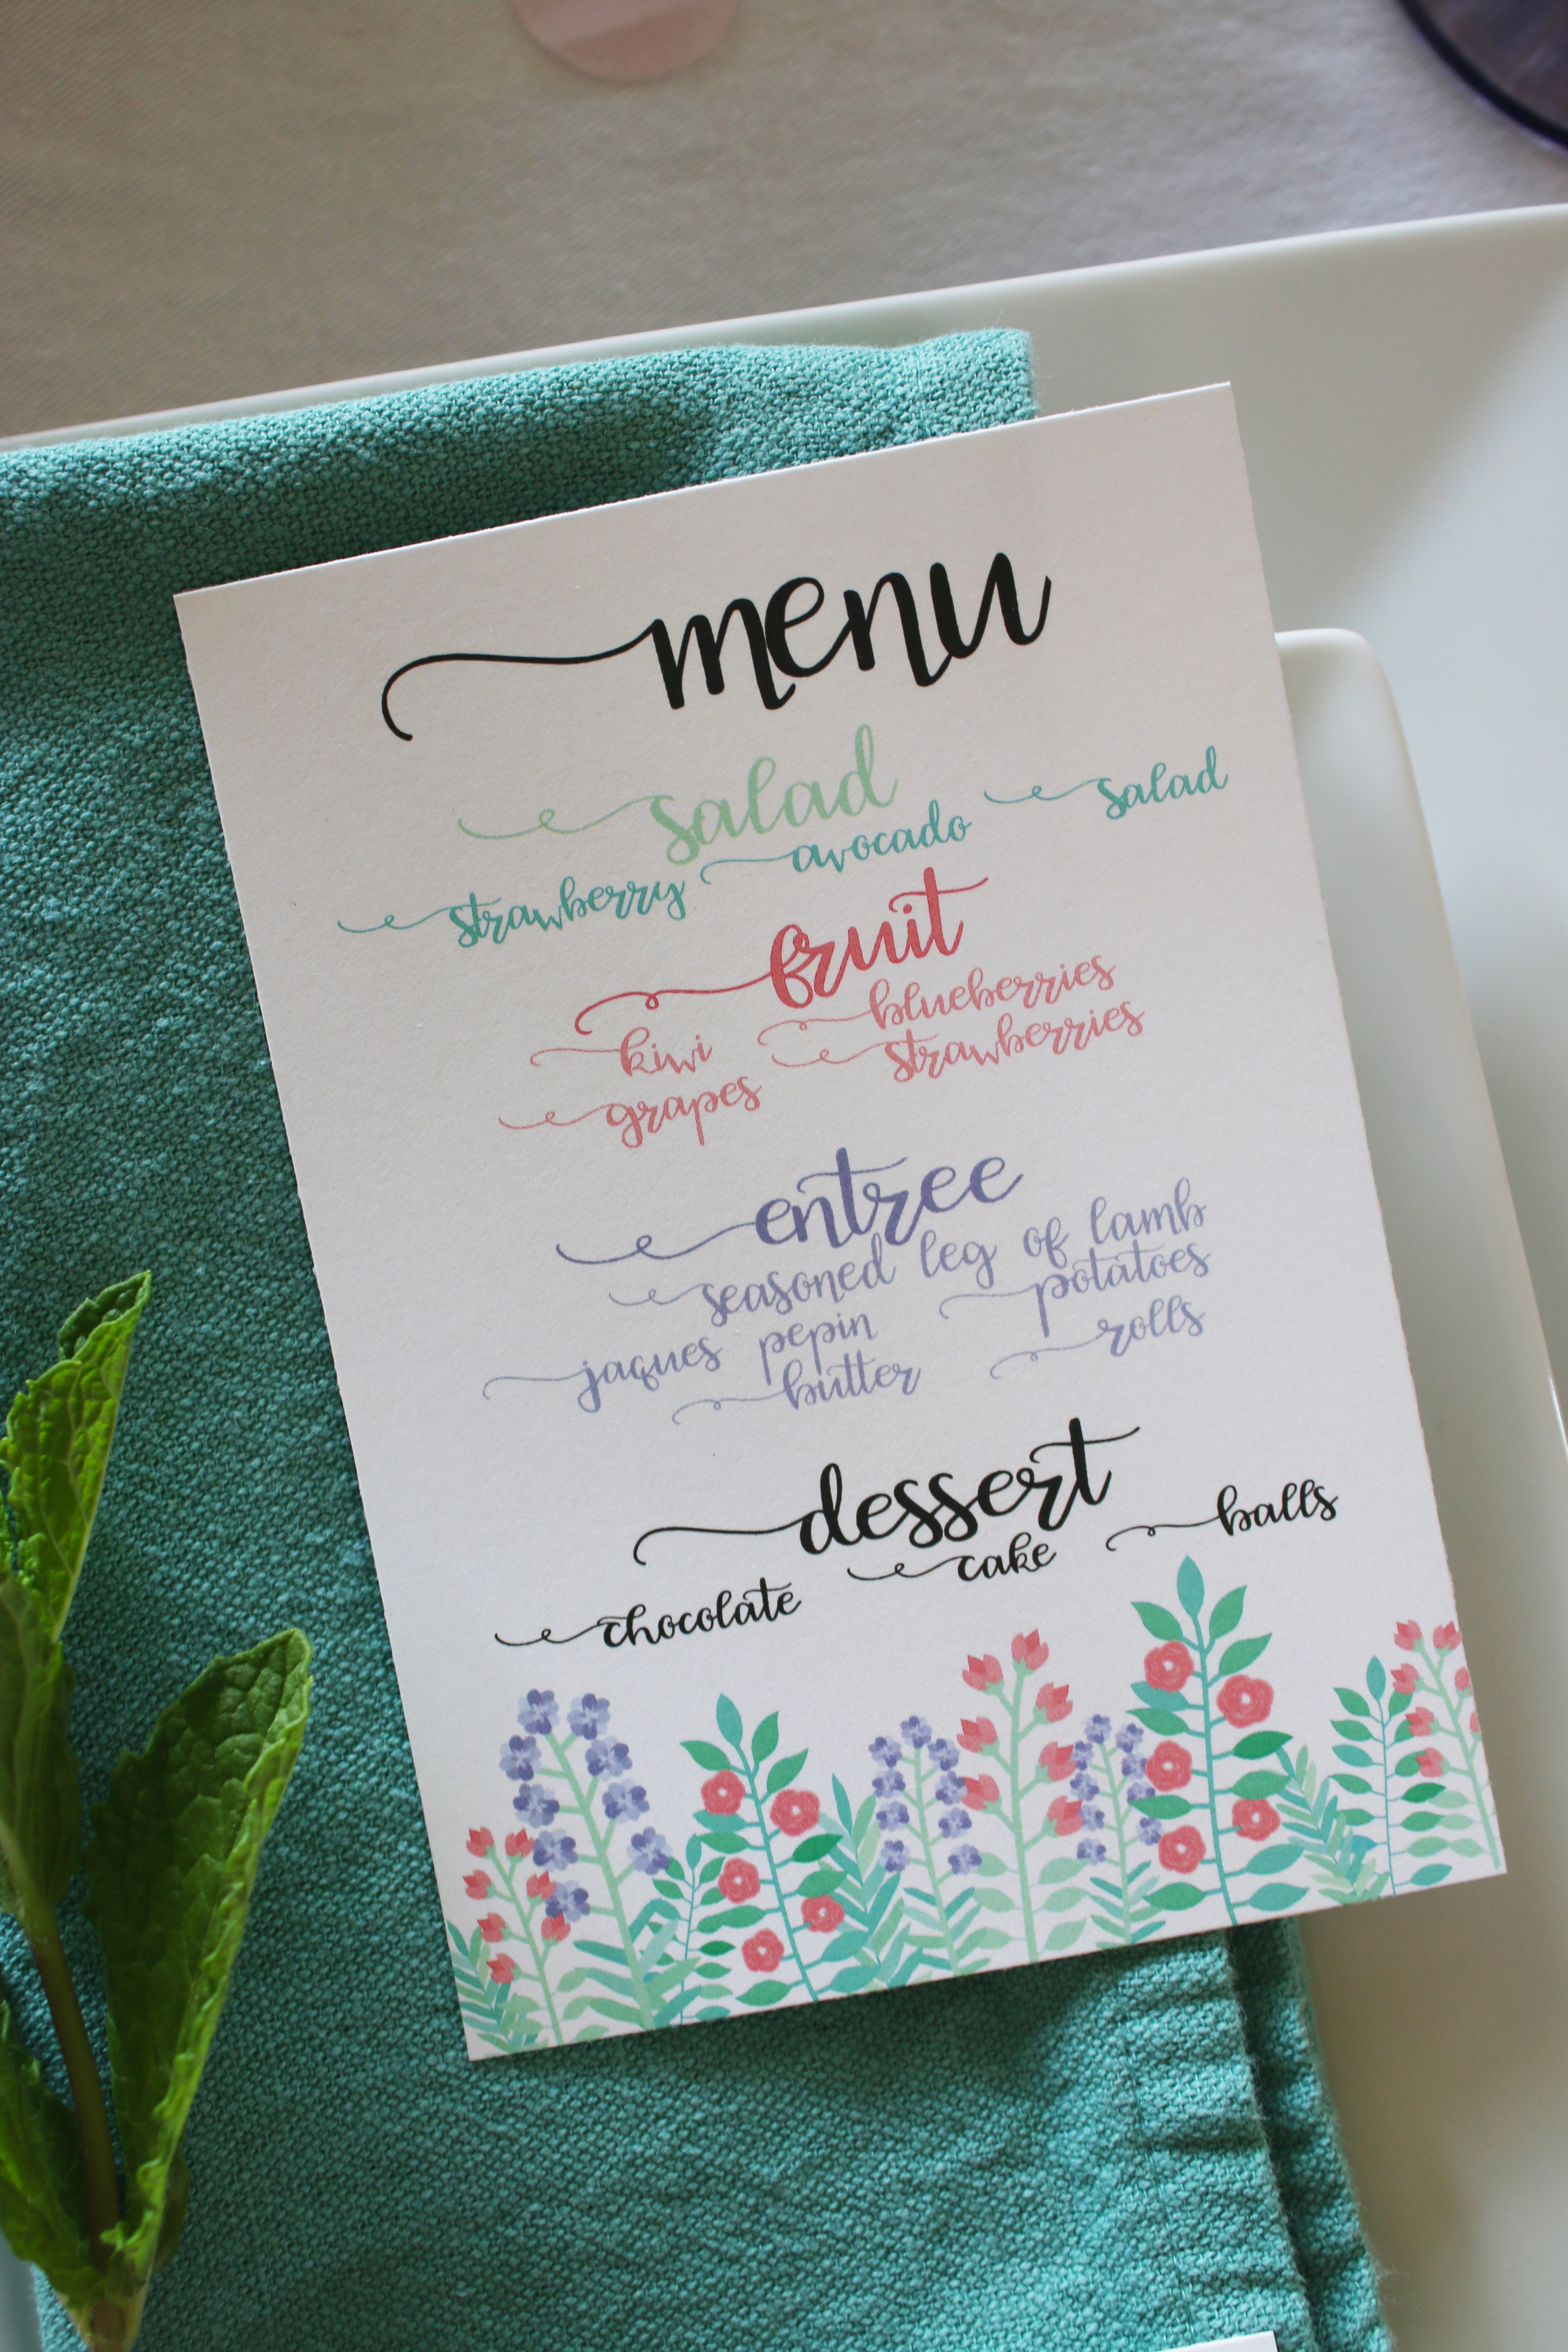 menu
salad
strawberry avocado salad
fruit
kiwi blueberries
grapes strawberries
entree
seasoned leg of lamb
jaques pepin potatoes
butter rolls
dessert
chocolate cake balls